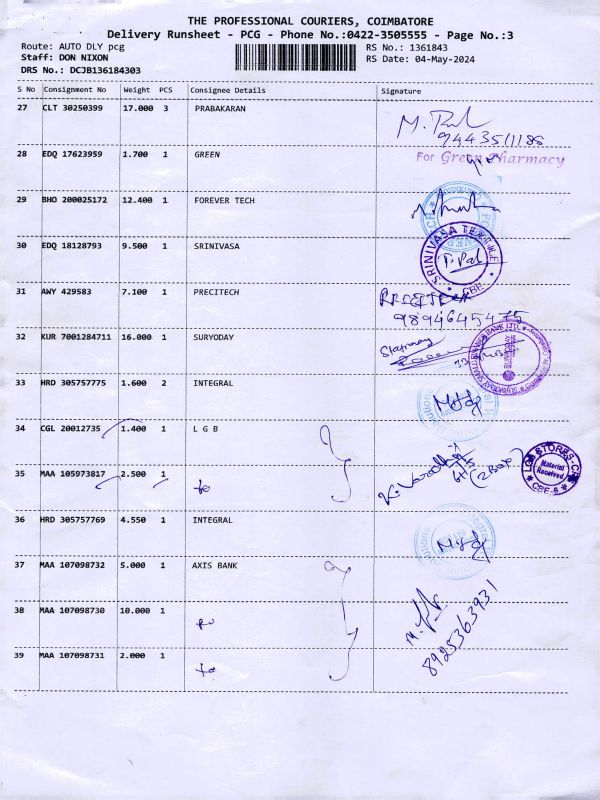 THE PROFESSIONAL COURIERS, COIMBATORE
Delivery Runsheet - PCG - Phone No.:0422-3505555 - Page No.:3
Route: AUTO DLY pcg RS No.: 1361843
Staff: DON NIXON RS Date: 04-May-2024
DRS No.: DCJB136184303
S No Consignment No Weight PCS Consignee Details Signature
27 CLT 30250399 17.000 3 PRABAKARAN
9443511188
28 EDQ 17623959 1.700 1 GREEN For Green Pharmacy
29 BHO 200025172 12.400 1 FOREVER TECH
30 EDQ 18128793 9.500 1 SRINIVASA SRINIVASA TEXTILE CBE
31 AWY 429583 7.100 1 PRECITECH
9894645475
32 KUR 7001284711 16.000 1 SURYODAY
33 HRD 305757775 1.600 2 INTEGRAL
34 CGL 20012735 1.400 1 L G B
LGB STORES-CR Material Received CBE-6
35 MAA 105973817 2.500 1
36 HRD 305757769 4.550 1 INTEGRAL
37 MAA 107098732 5.000 1 AXIS BANK
38 MAA 107098730 10.000 1
8925363931
39 MAA 107098731 2.000 1